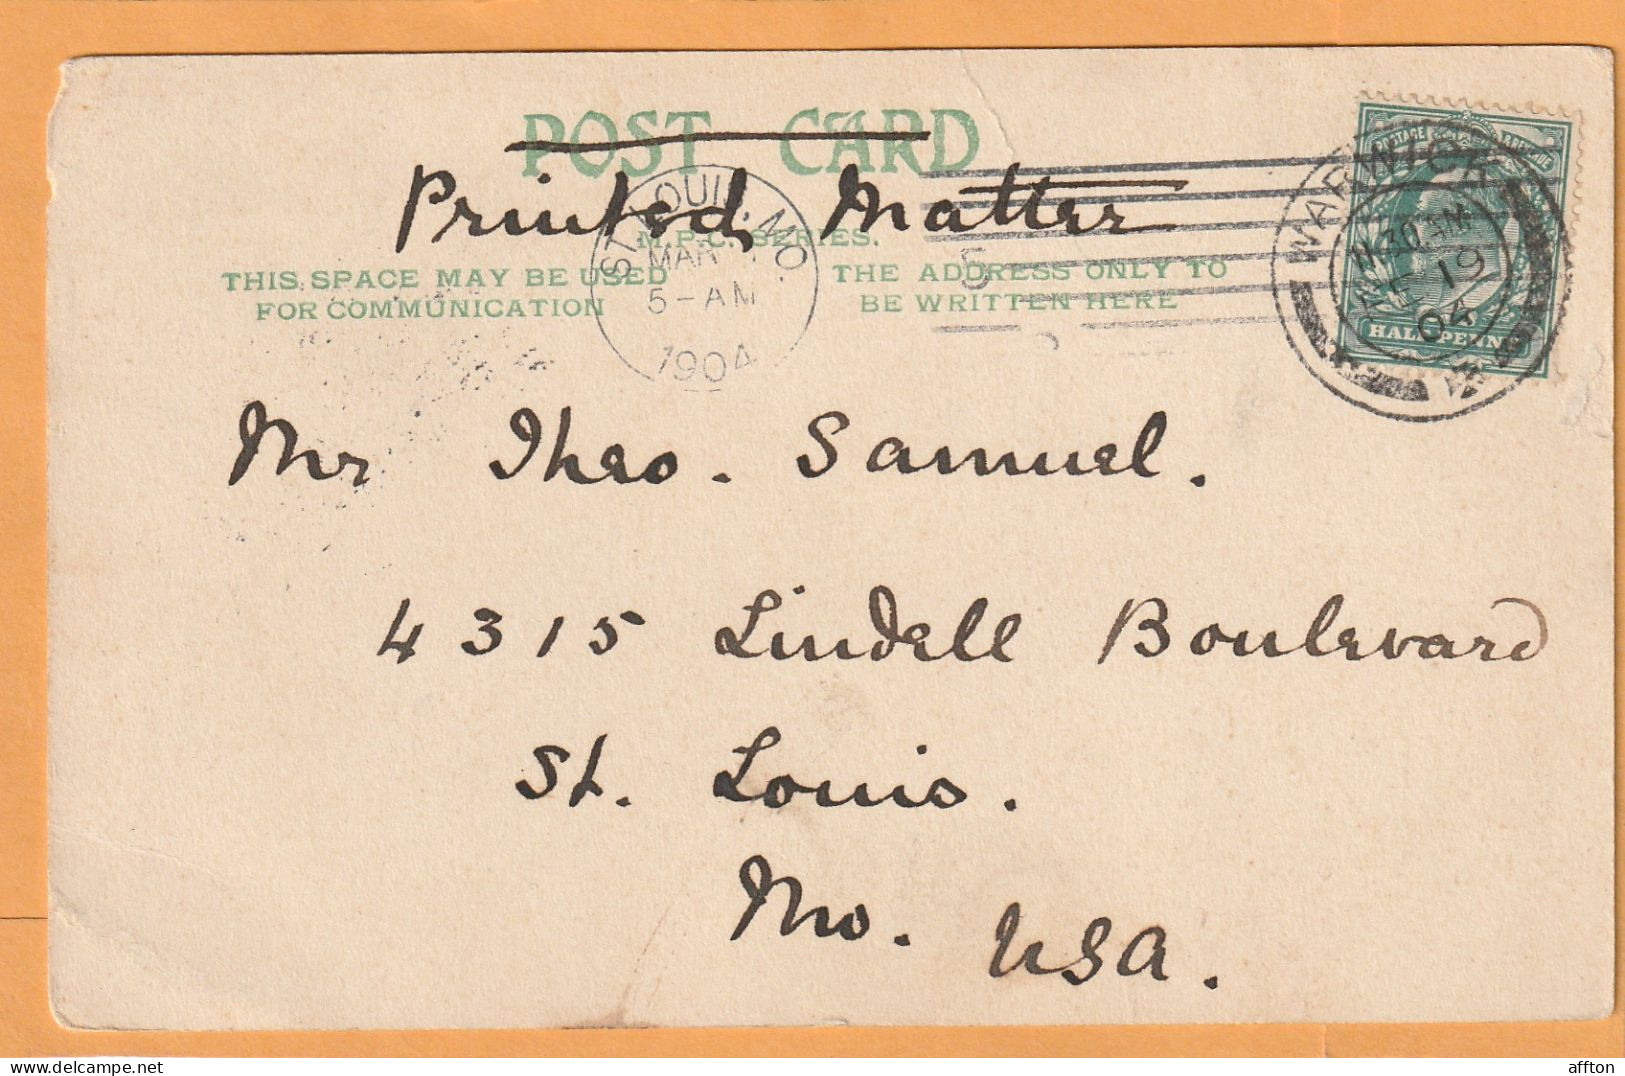 POST CARD
Printed Matter
M.P.C. SERIES.
THIS SPACE MAY BE USED
FOR COMMUNICATION
THE ADDRESS ONLY TO
BE WRITTEN HERE
ST. LOUIS, MO.
MAR
5-AM
1904
5
WARWICK
11.30 AM
19
04
POSTAGE REVENUE
HALFPENNY
Mr Theo. Samuel.
4315 Lindell Boulevard
St. Louis.
Mo. USA.
affton